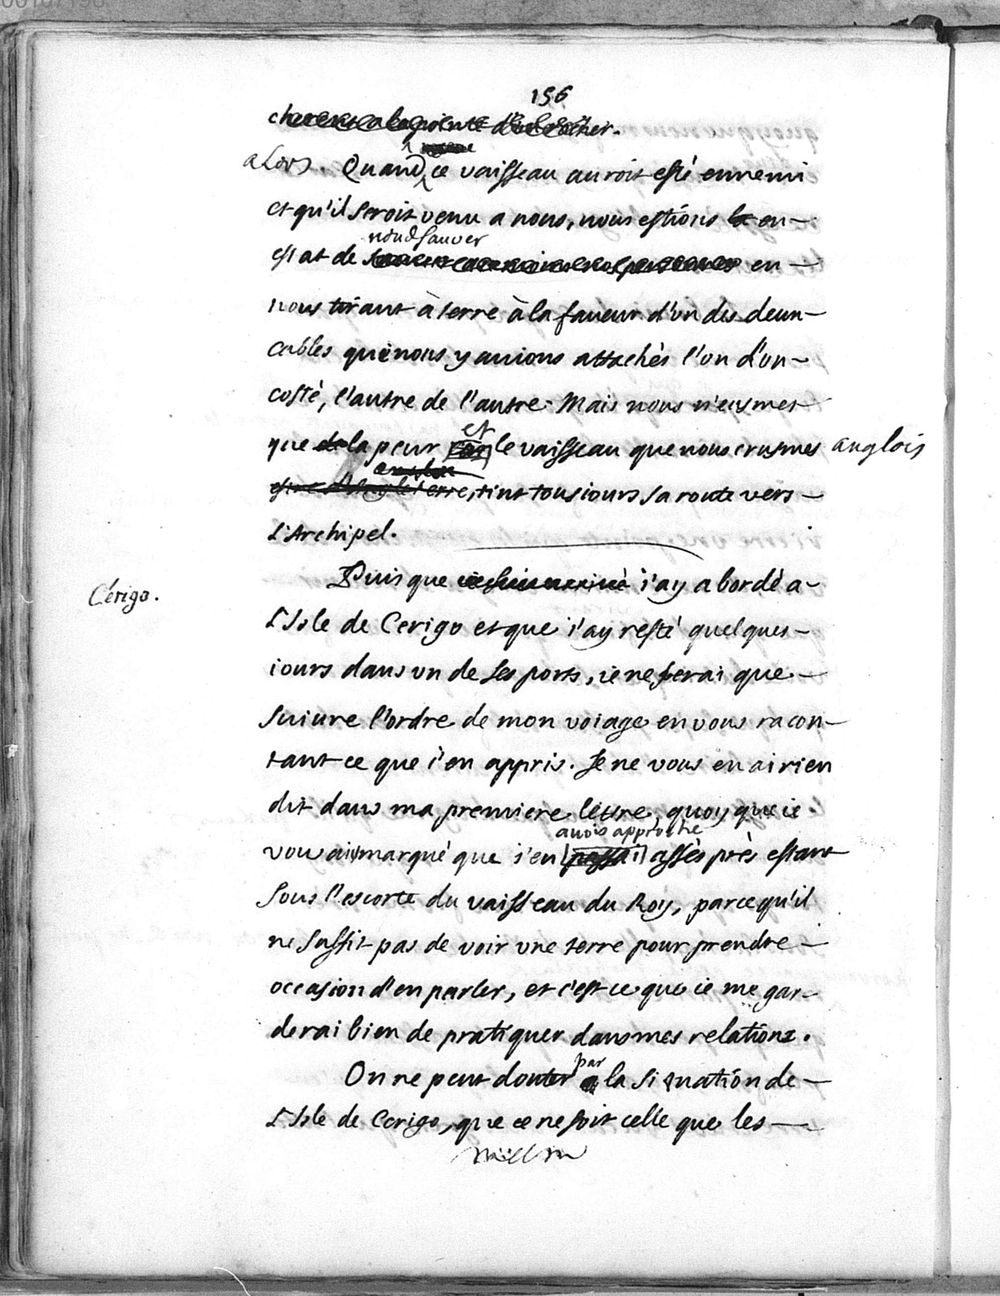 156
cherent a la pointe d'un rocher.
aLors. Quand ce vaisseau auroit esté ennemi
et qu'il seroit venu a nous, nous estions la en-
nous sauver
estat de en-
nous tirant à terre à la faueur d'un des deux-
cables que nous y auions attachés l'un d'un-
costé, l'autre de l'autre. Mais nous n'eusmes
et
que de la peur le vaisseau que nous crusmes anglois
estre d'Angleterre, tint tousiours sa route vers-
L'Archipel.
Cérigo.
Puis que j'ay abordé a-
L'Isle de Cerigo et que i'ay resté quelques-
iours dans un de ses ports, ie ne ferai que-
suiure l'ordre de mon voiage en vous racon-
tant ce que i'en appris. Je ne vous en ai rien
dit dans ma premiere lettre, quoy que ie
auois approché
vous ai marqué que i'en passai assés près estant
sous l'escorte du vaisseau du Roy, parce qu'il
ne suffit pas de voir une terre pour prendre-
occasion d'en parler, et c'est ce que ie me gar-
derai bien de pratiquer dans mes relations.
par
On ne peut douter la situation de-
L'Isle de Cerigo, que ce ne soit celle que les-